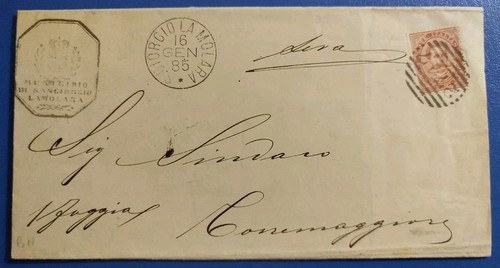 MUNICIPIO
DI SANGIORGIO
LAMOLARA
S. GIORGIO LA MOLARA
16
GEN
85
Sig Sindaco
Foggia
Torremaggiore
BN